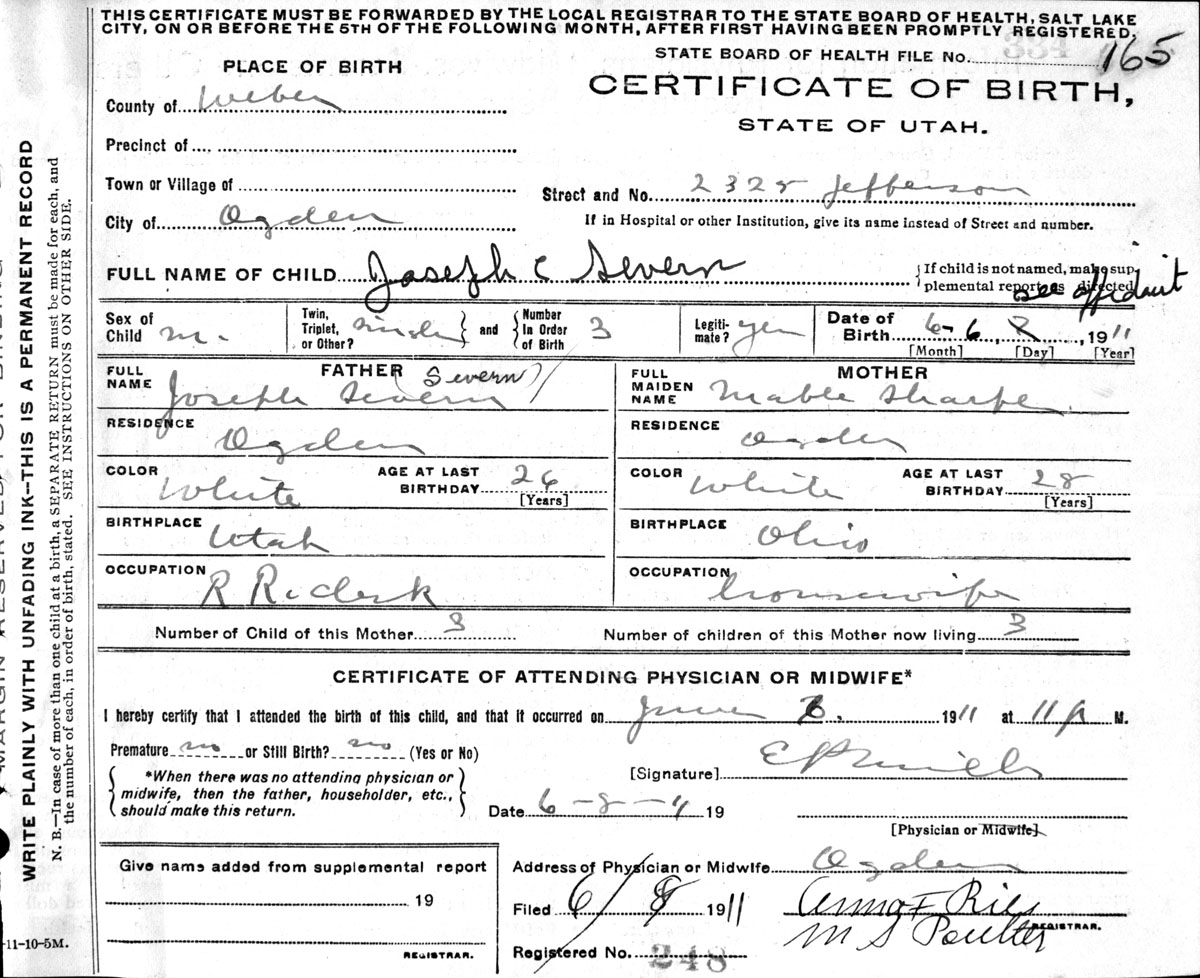 THIS CERTIFICATE MUST BE FORWARDED BY THE LOCAL REGISTRAR TO THE STATE BOARD OF HEALTH, SALT LAKE
CITY, ON OR BEFORE THE 5TH OF THE FOLLOWING MONTH, AFTER FIRST HAVING BEEN PROMPTLY REGISTERED.
STATE BOARD OF HEALTH FILE No. 165
PLACE OF BIRTH
CERTIFICATE OF BIRTH,
STATE OF UTAH.
County of Weber
Precinct of
Town or Village of
Street and No. 2325 Jefferson
City of Ogden
If in Hospital or other Institution, give its name instead of Street and number.
FULL NAME OF CHILD Joseph C Severn
If child is not named, make sup
plemental report as directed
see affidavit
Sex of Child m.
Twin, Triplet, or Other? single and Number In Order of Birth 3
Legiti-mate? yes
Date of Birth 6-6, 1911
[Month] [Day] [Year]
FATHER (Severn)
FULL NAME Joseph Severn
MOTHER
FULL MAIDEN NAME Mable Sharpe
RESIDENCE Ogden
RESIDENCE Ogden
COLOR White AGE AT LAST BIRTHDAY 26 [Years]
COLOR White AGE AT LAST BIRTHDAY 28 [Years]
BIRTHPLACE Utah
BIRTHPLACE Ohio
OCCUPATION R R. clerk
OCCUPATION housewife
Number of Child of this Mother 3 Number of children of this Mother now living 3
CERTIFICATE OF ATTENDING PHYSICIAN OR MIDWIFE*
I hereby certify that I attended the birth of this child, and that it occurred on June 6, 1911 at 11 P M.
Premature no or Still Birth? no (Yes or No)
*When there was no attending physician or
midwife, then the father, householder, etc.,
should make this return.
[Signature]
Date 6-8-11 19
[Physician or Midwife]
Give name added from supplemental report
19
REGISTRAR.
Address of Physician or Midwife Ogden
Filed 6/8 1911
Anna F Ries
M S Poulter
REGISTRAR.
Registered No. 248
-11-10-5M.
MARGIN RESERVED FOR BINDING
WRITE PLAINLY WITH UNFADING INK--THIS IS A PERMANENT RECORD
N. B.—In case of more than one child at a birth, a SEPARATE RETURN must be made for each, and
the number of each, in order of birth, stated. SEE INSTRUCTIONS ON OTHER SIDE.